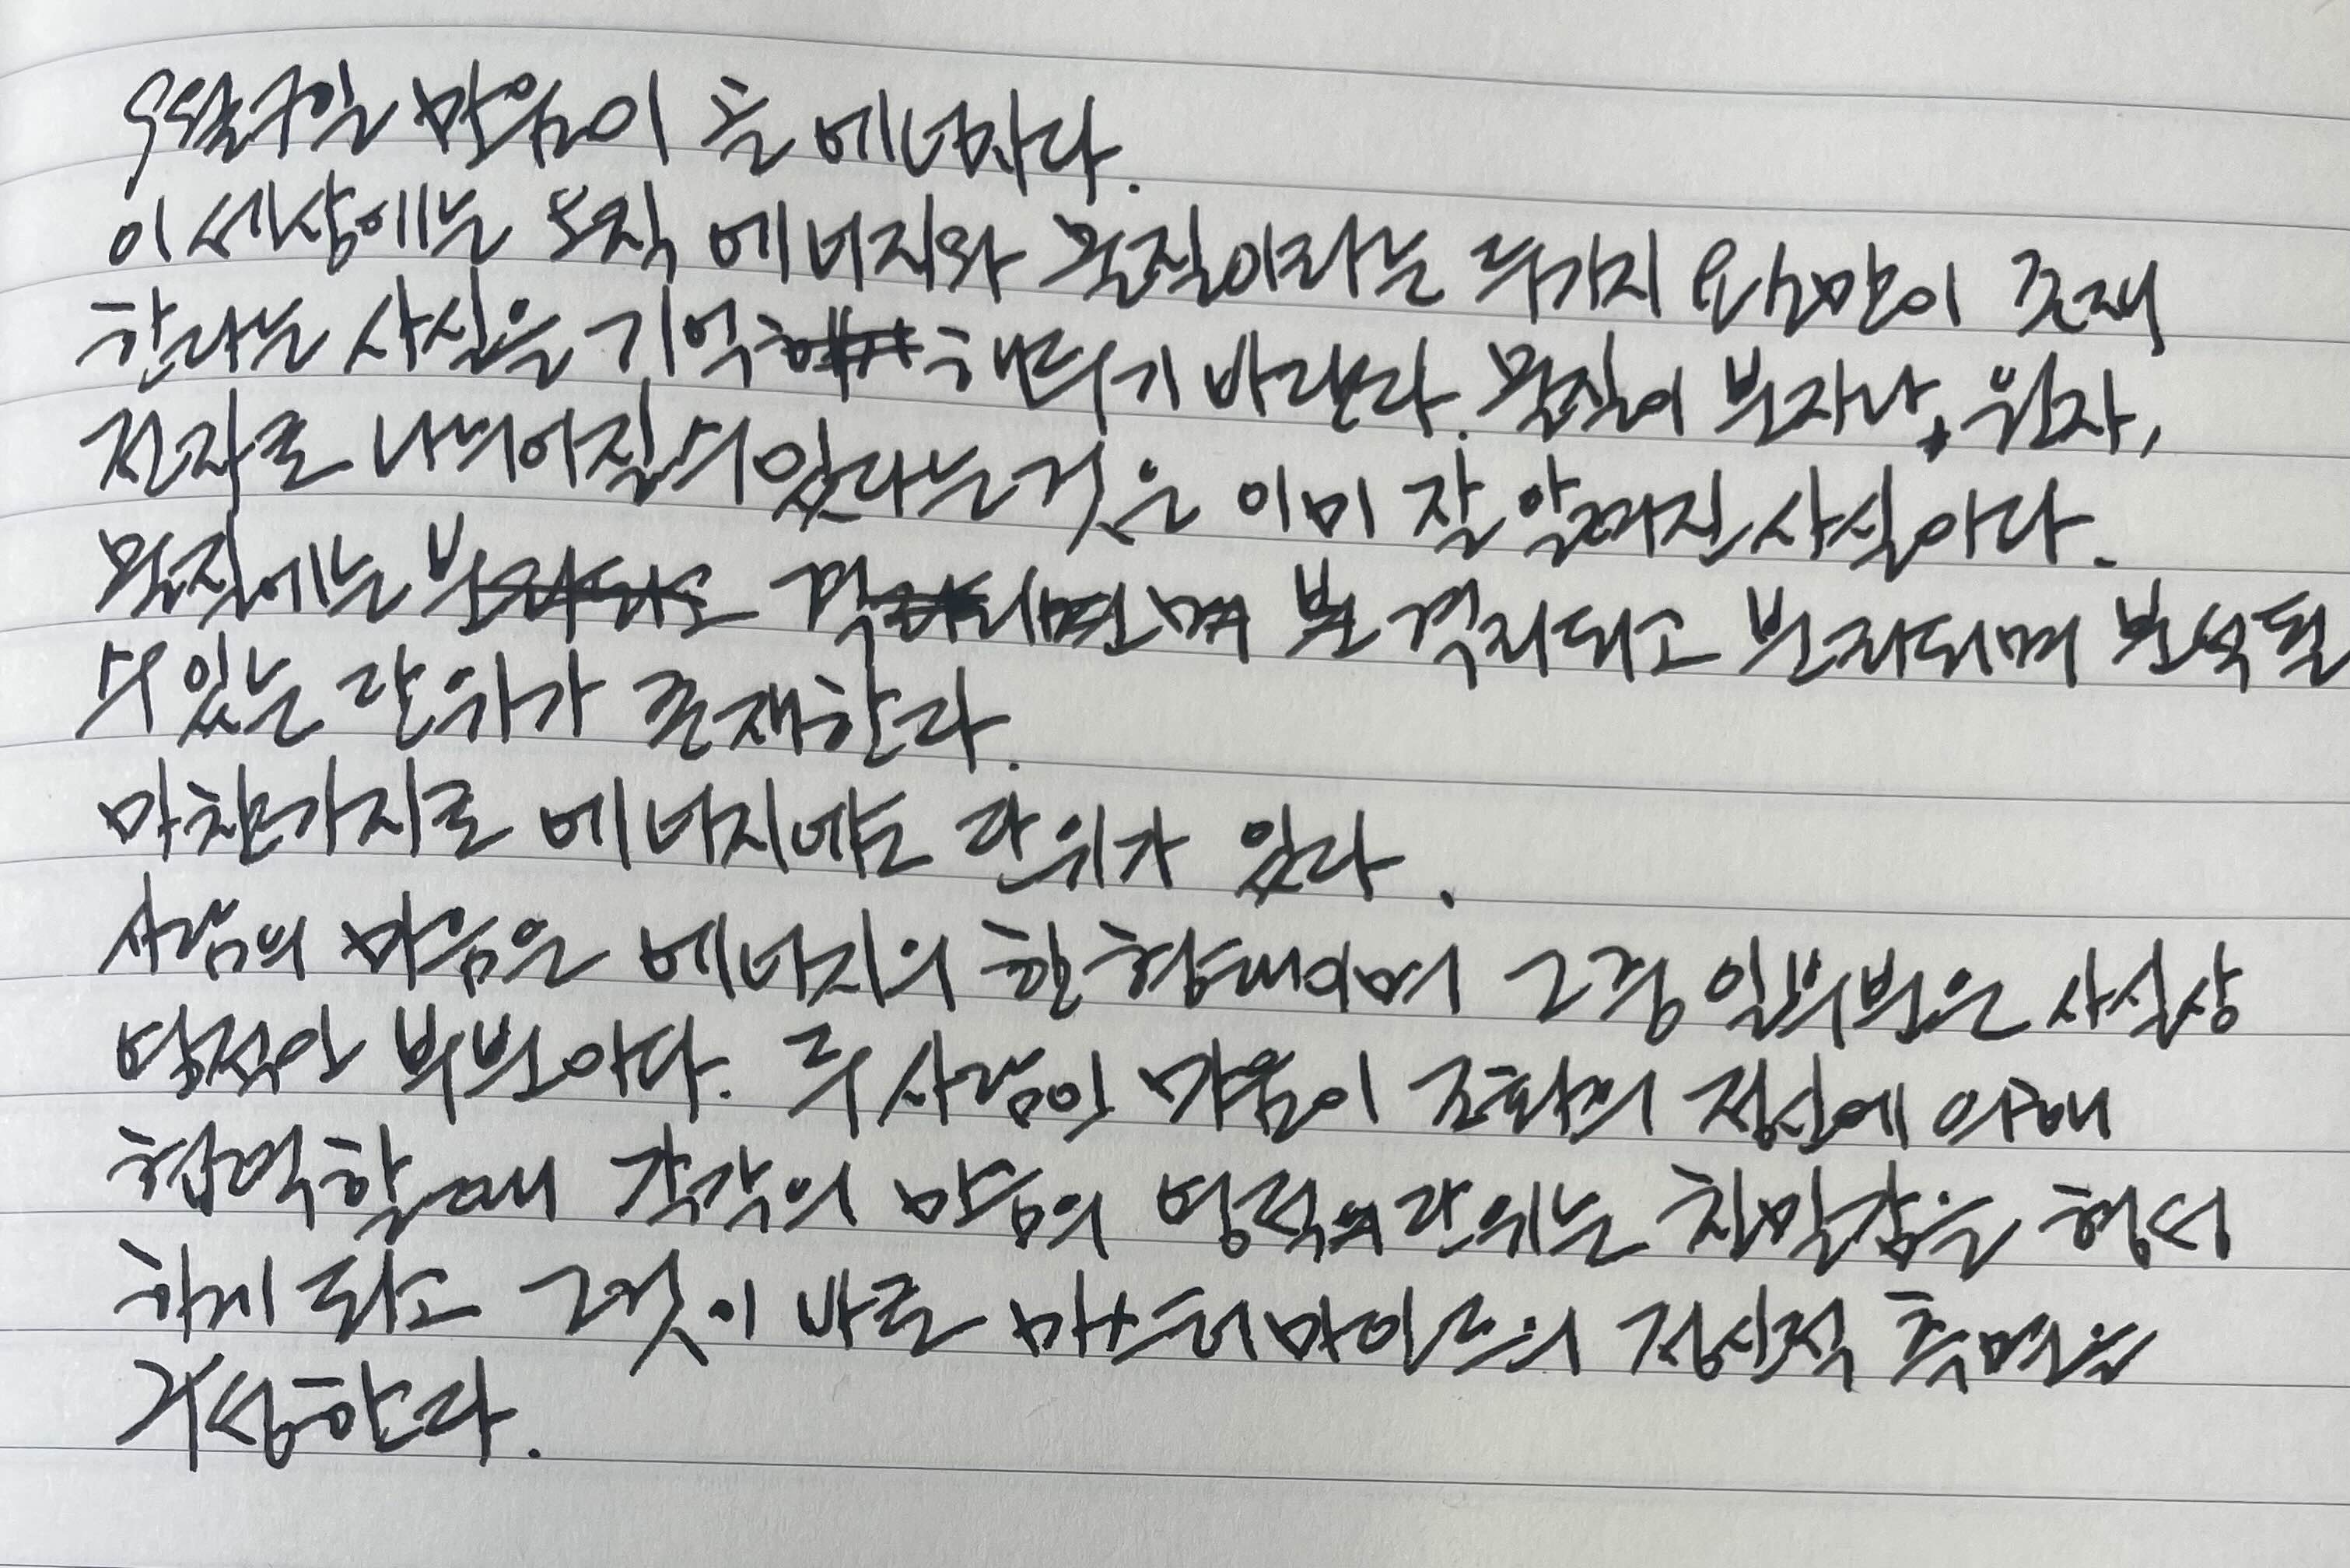 9월 9일 마음이 곧 에너지다.
이 세상에는 오직 에너지와 물질이라는 두가지 요소만이 존재
한다는 사실을 기억해두기 바란다. 물질이 분자나, 원자,
전자로 나뉘어질 수 있다는 것은 이미 잘 알려진 사실이다.
물질에는 격리되고 분리되며 분석될
수 있는 단위가 존재한다.
마찬가지로 에너지에도 단위가 있다.
사람의 마음은 에너지의 한 형태이며 그중 일부분은 사실상
영적인 부분이다. 두 사람의 마음이 조화의 정신에 의해
협력할 때 각각의 마음의 영적 단위는 친밀감을 형성
하게 되고 그것이 바로 마스터마인드의 정신적 측면을
구성한다.